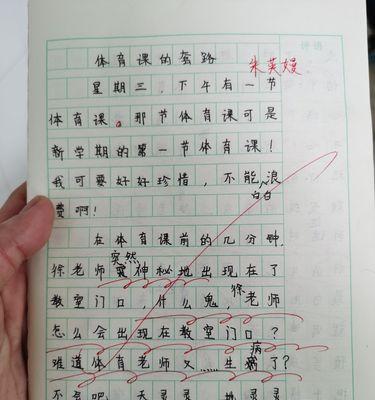 体育课的套路
朱英嫚
评语
星期三，下午有一节
体育课。那节体育课可是
新学期的第一节体育课！
我可要好好珍惜，不能浪
白白
费啊！
在体育课前的几分钟，
突然
徐老师神秘地出现在了
教室门口，什么鬼，徐老师
怎么会出现在教室门口？
病
难道体育老师又……生病了？
不会吧，天灵灵，地灵灵